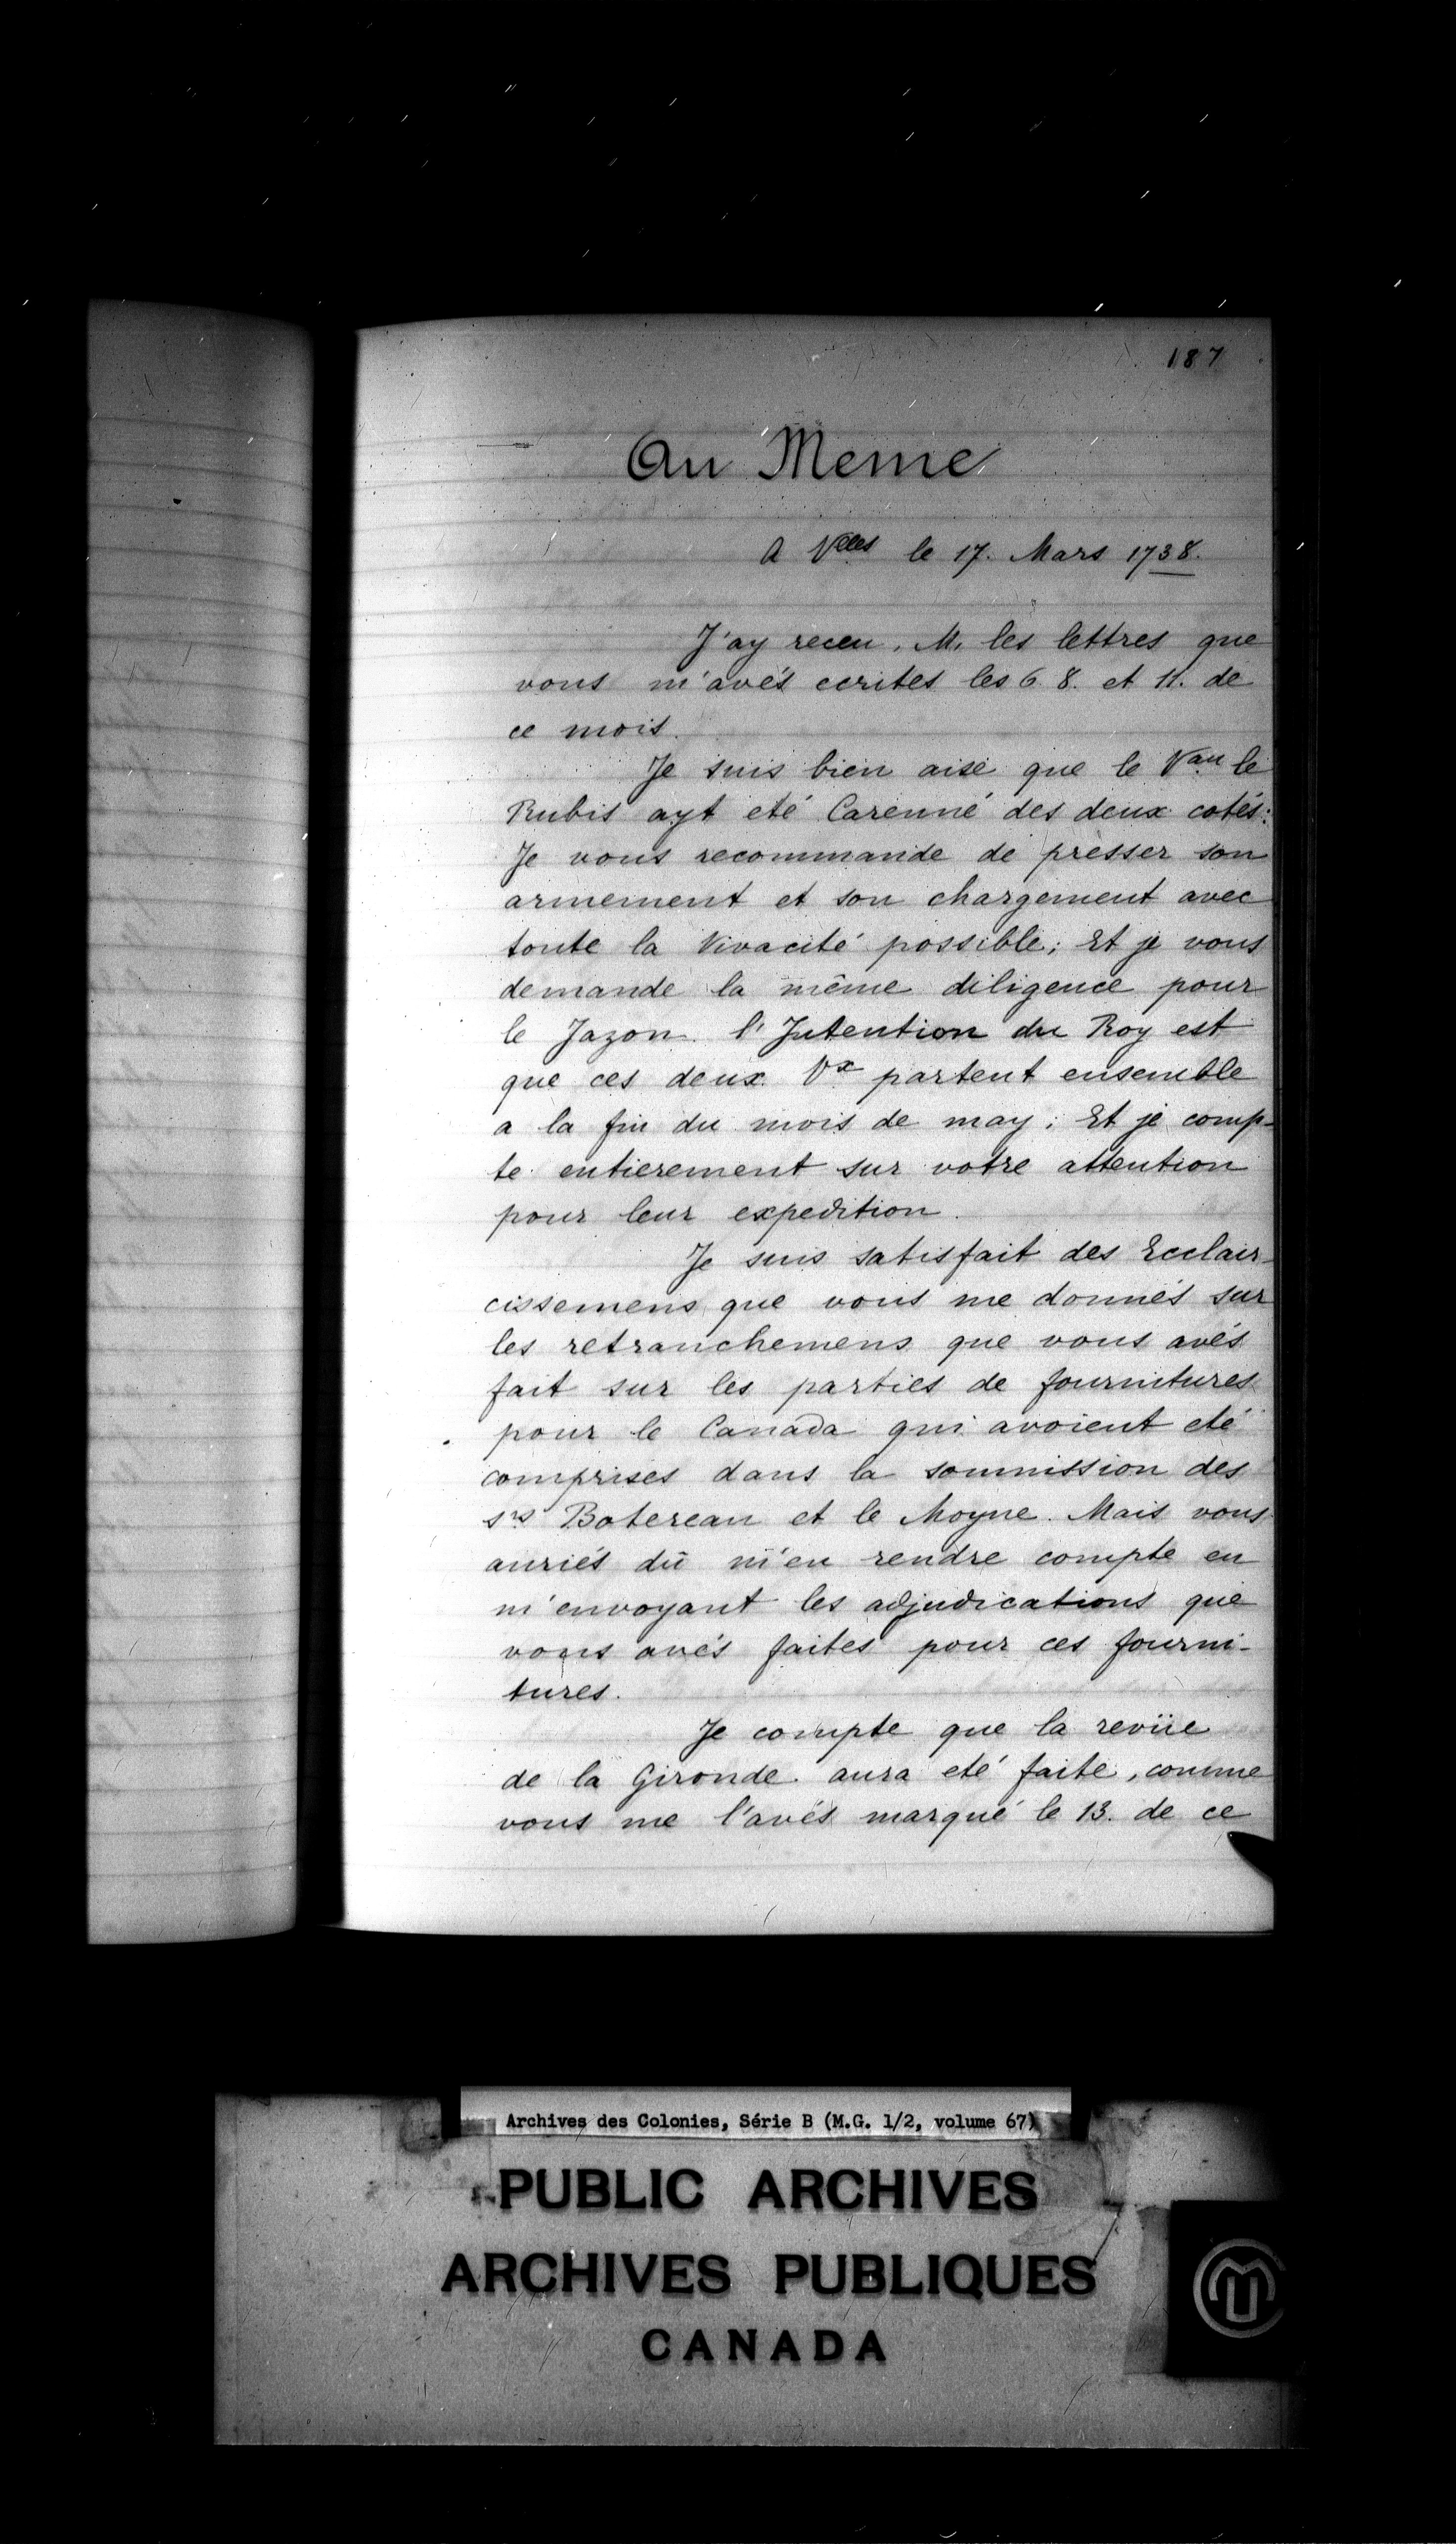 187
Au Meme
A Vlles le 17. Mars 1738.
J'ay receu, M. les lettres que
vous m'avés ecrites les 6. 8. et 11. de
ce mois.
Je suis bien aise que le Vau le
Rubis ayt eté Carenné des deux cotés:
Je vous recommande de presser son
armement et son chargement avec
toute la Vivacité possible; Et je vous
demande la même diligence pour
le Jazon. l'Intention du Roy est
que ces deux Vx partent ensemble
a la fin du mois de may; Et je comp-
te entierement sur votre attention
pour leur expedition.
Je suis satisfait des Ecclair-
cissemens que vous me donnés sur
les retranchemens que vous avés
fait sur les parties de fournitures
pour le Canada qui avoient eté
comprises dans la soumission des
srs Botereau et le Moyne. Mais vous
auriés dû m'en rendre compte en
m'envoyant les adjudications que
vous avés faites pour ces fourni-
tures.
Je compte que la revüe
de la Gironde aura eté faite, comme
vous me l'avés marqué le 13. de ce
Archives des Colonies, Série B (M.G. 1/2, volume 67)
PUBLIC ARCHIVES
ARCHIVES PUBLIQUES
CANADA